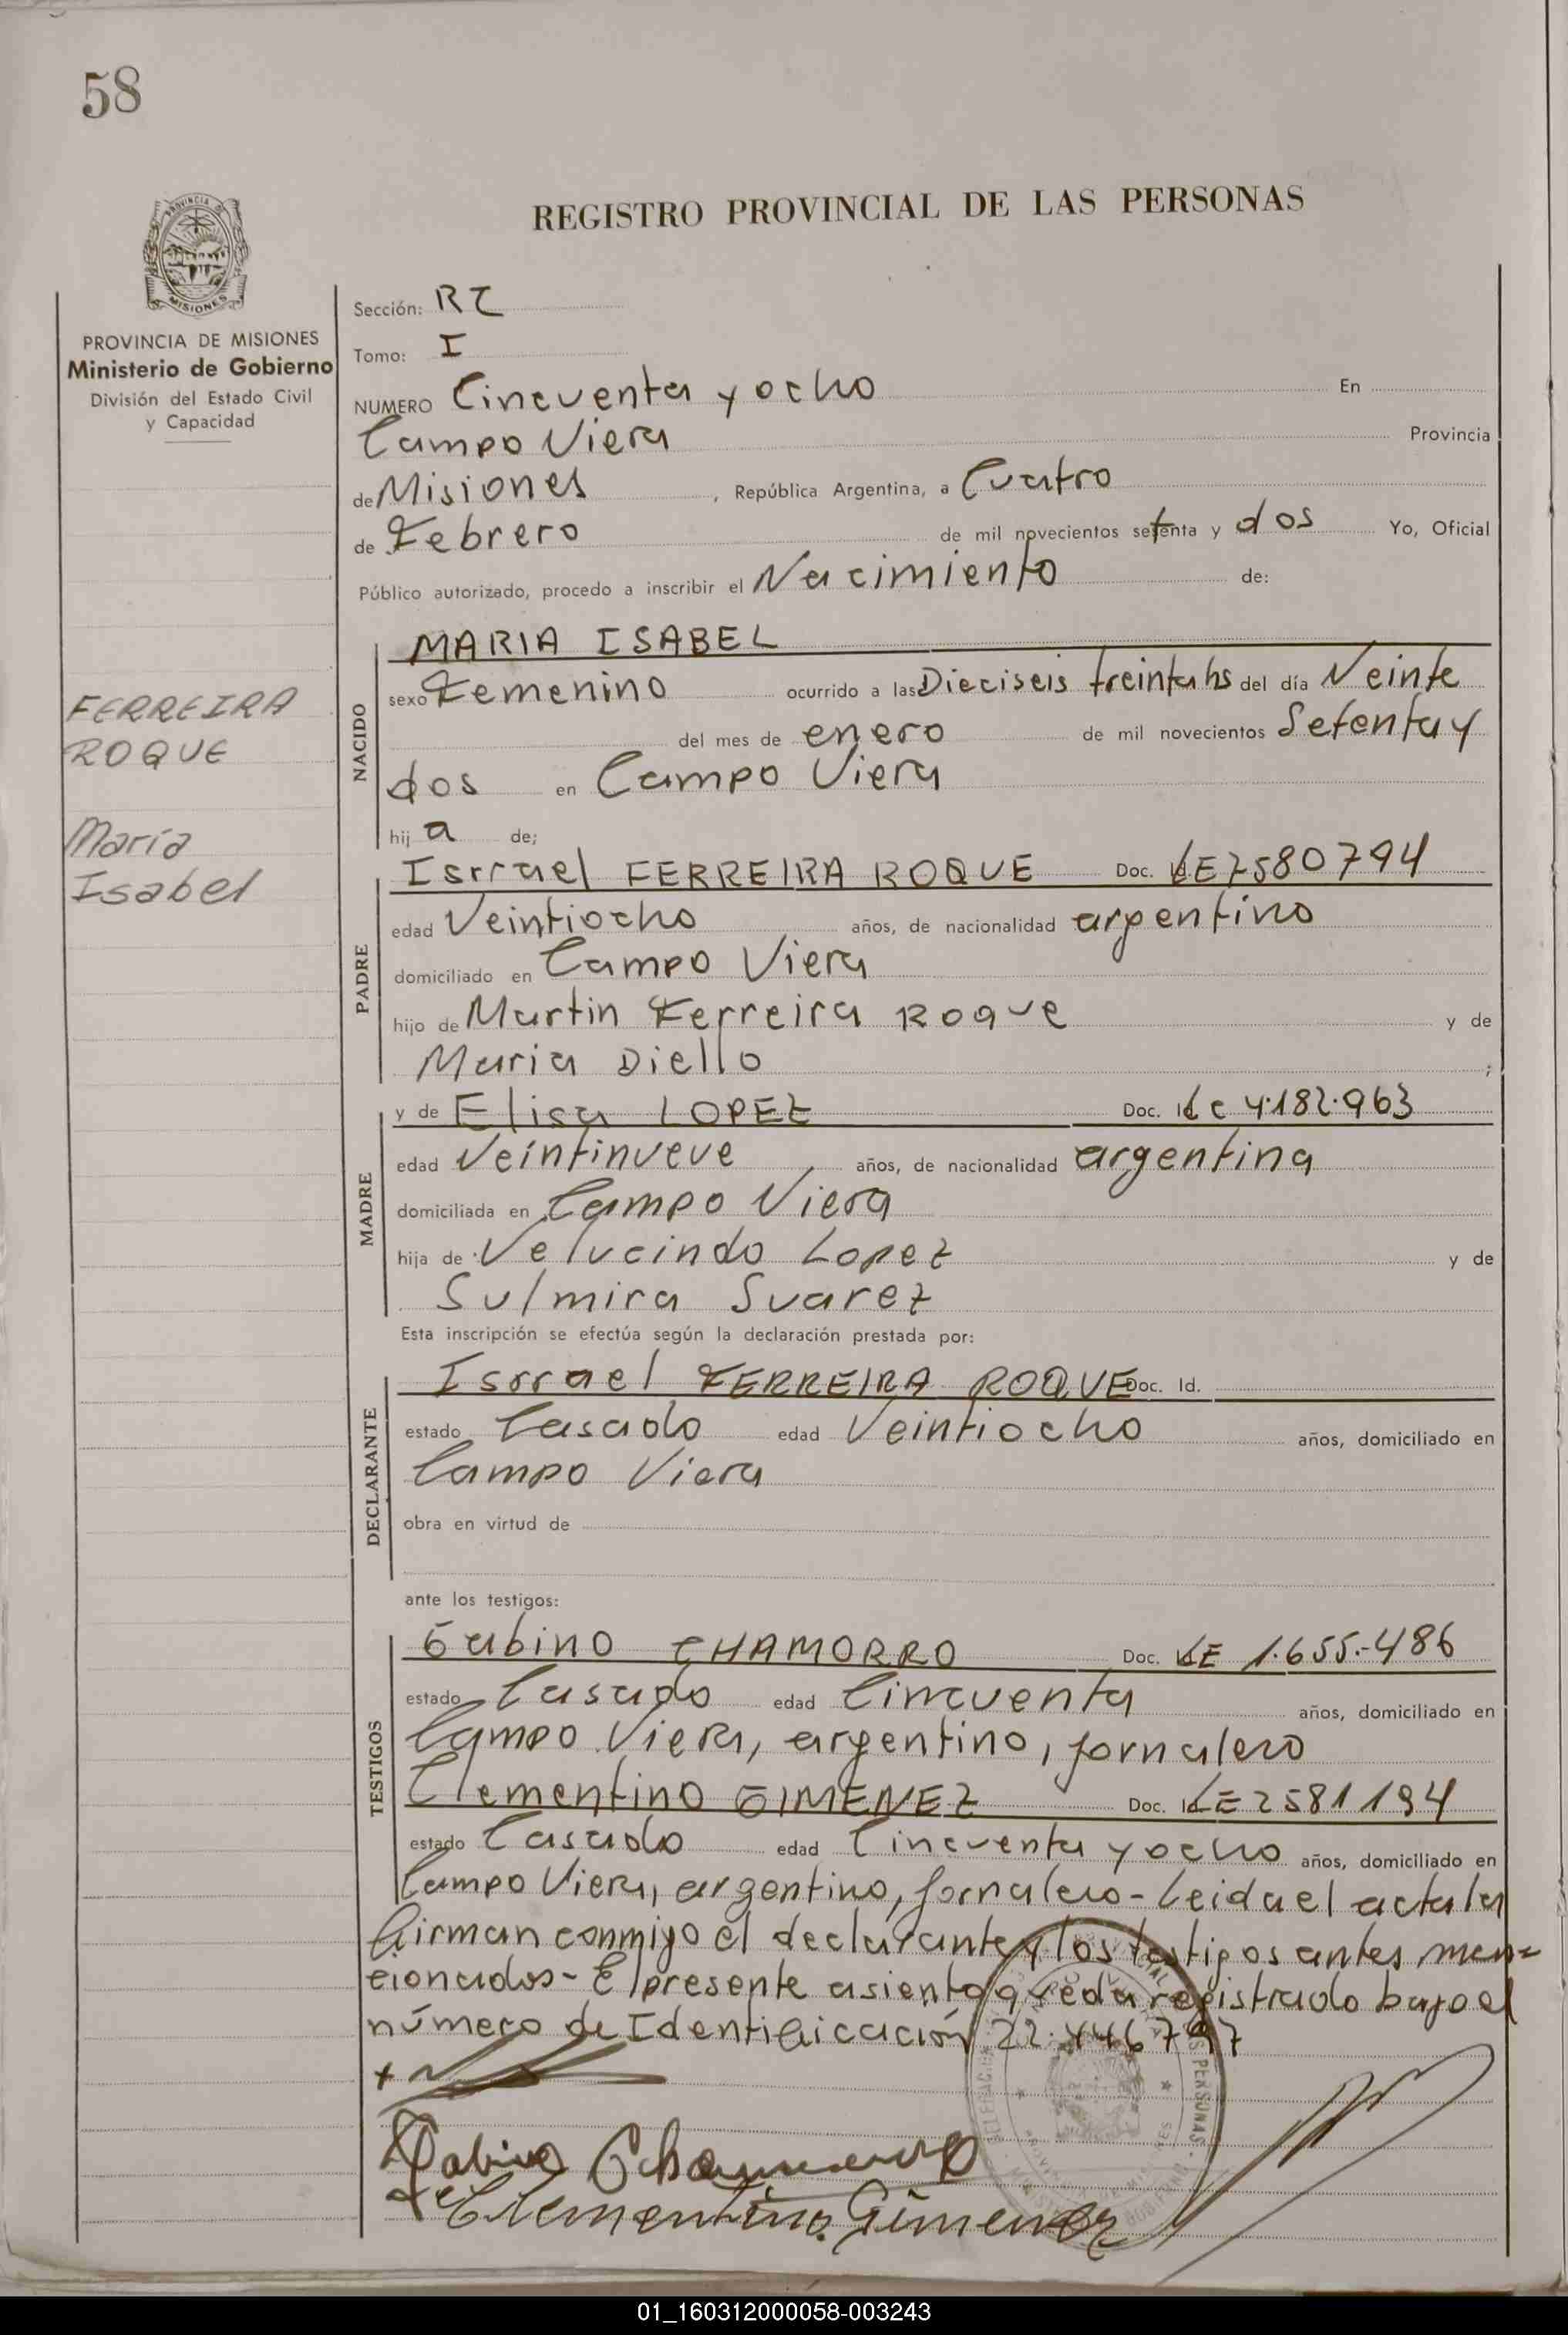 58
REGISTRO PROVINCIAL DE LAS PERSONAS
PROVINCIA
MISIONES
PROVINCIA DE MISIONES
Ministerio de Gobierno
División del Estado Civil
y Capacidad
FERREIRA
ROQUE
María
Isabel
Sección: RC
Tomo: I
NUMERO Cincuenta y ocho En
Campo Viera Provincia
de Misiones, República Argentina, a Cuatro
de Febrero de mil novecientos setenta y dos Yo, Oficial
Público autorizado, procedo a inscribir el Nacimiento de:
NACIDO
MARIA ISABEL
sexo Femenino ocurrido a las Dieciseis treinta hs del día Veinte
del mes de enero de mil novecientos Setenta y
dos en Campo Viera
hij a de;
PADRE
Isrrael FERREIRA ROQUE Doc. LE 7580794
edad Veintiocho años, de nacionalidad argentino
domiciliado en Campo Viera
hijo de Martin Ferreira Roque y de
Maria Diello;
MADRE
y de Elisa LOPEZ Doc. Lc 4.182.963
edad Veintinueve, años, de nacionalidad argentina
domiciliada en Campo Viera
hija de Velucindo Lopez y de
Sulmira Suarez
Esta inscripción se efectúa según la declaración prestada por:
DECLARANTE
Isrrael FERREIRA ROQUE Doc. Id.
estado Casado edad Veintiocho años, domiciliado en
Campo Viera
obra en virtud de
ante los testigos:
TESTIGOS
Gabino CHAMORRO Doc. LE 1.655.-486
estado Casado edad Cincuenta años, domiciliado en
Campo Viera, argentino, jornalero
Clementino GIMENEZ Doc. LE 2581194
estado Casado edad Cincuenta y ocho años, domiciliado en
Campo Viera, argentino, jornalero - Leida el acta la
firman conmigo el declarante y los testigos antes men=
cionados - El presente asiento queda registrado bajo el
número de Identificación 22.446797
Gabino Chamorro
Clementino Gimenez
01_160312000058-003243